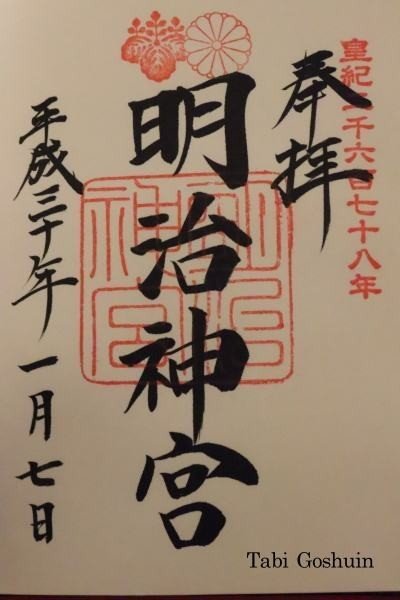 皇紀二千六百七十八年
奉拝
明治神宮
明治神宮
平成三十年一月七日
Tabi Goshuin